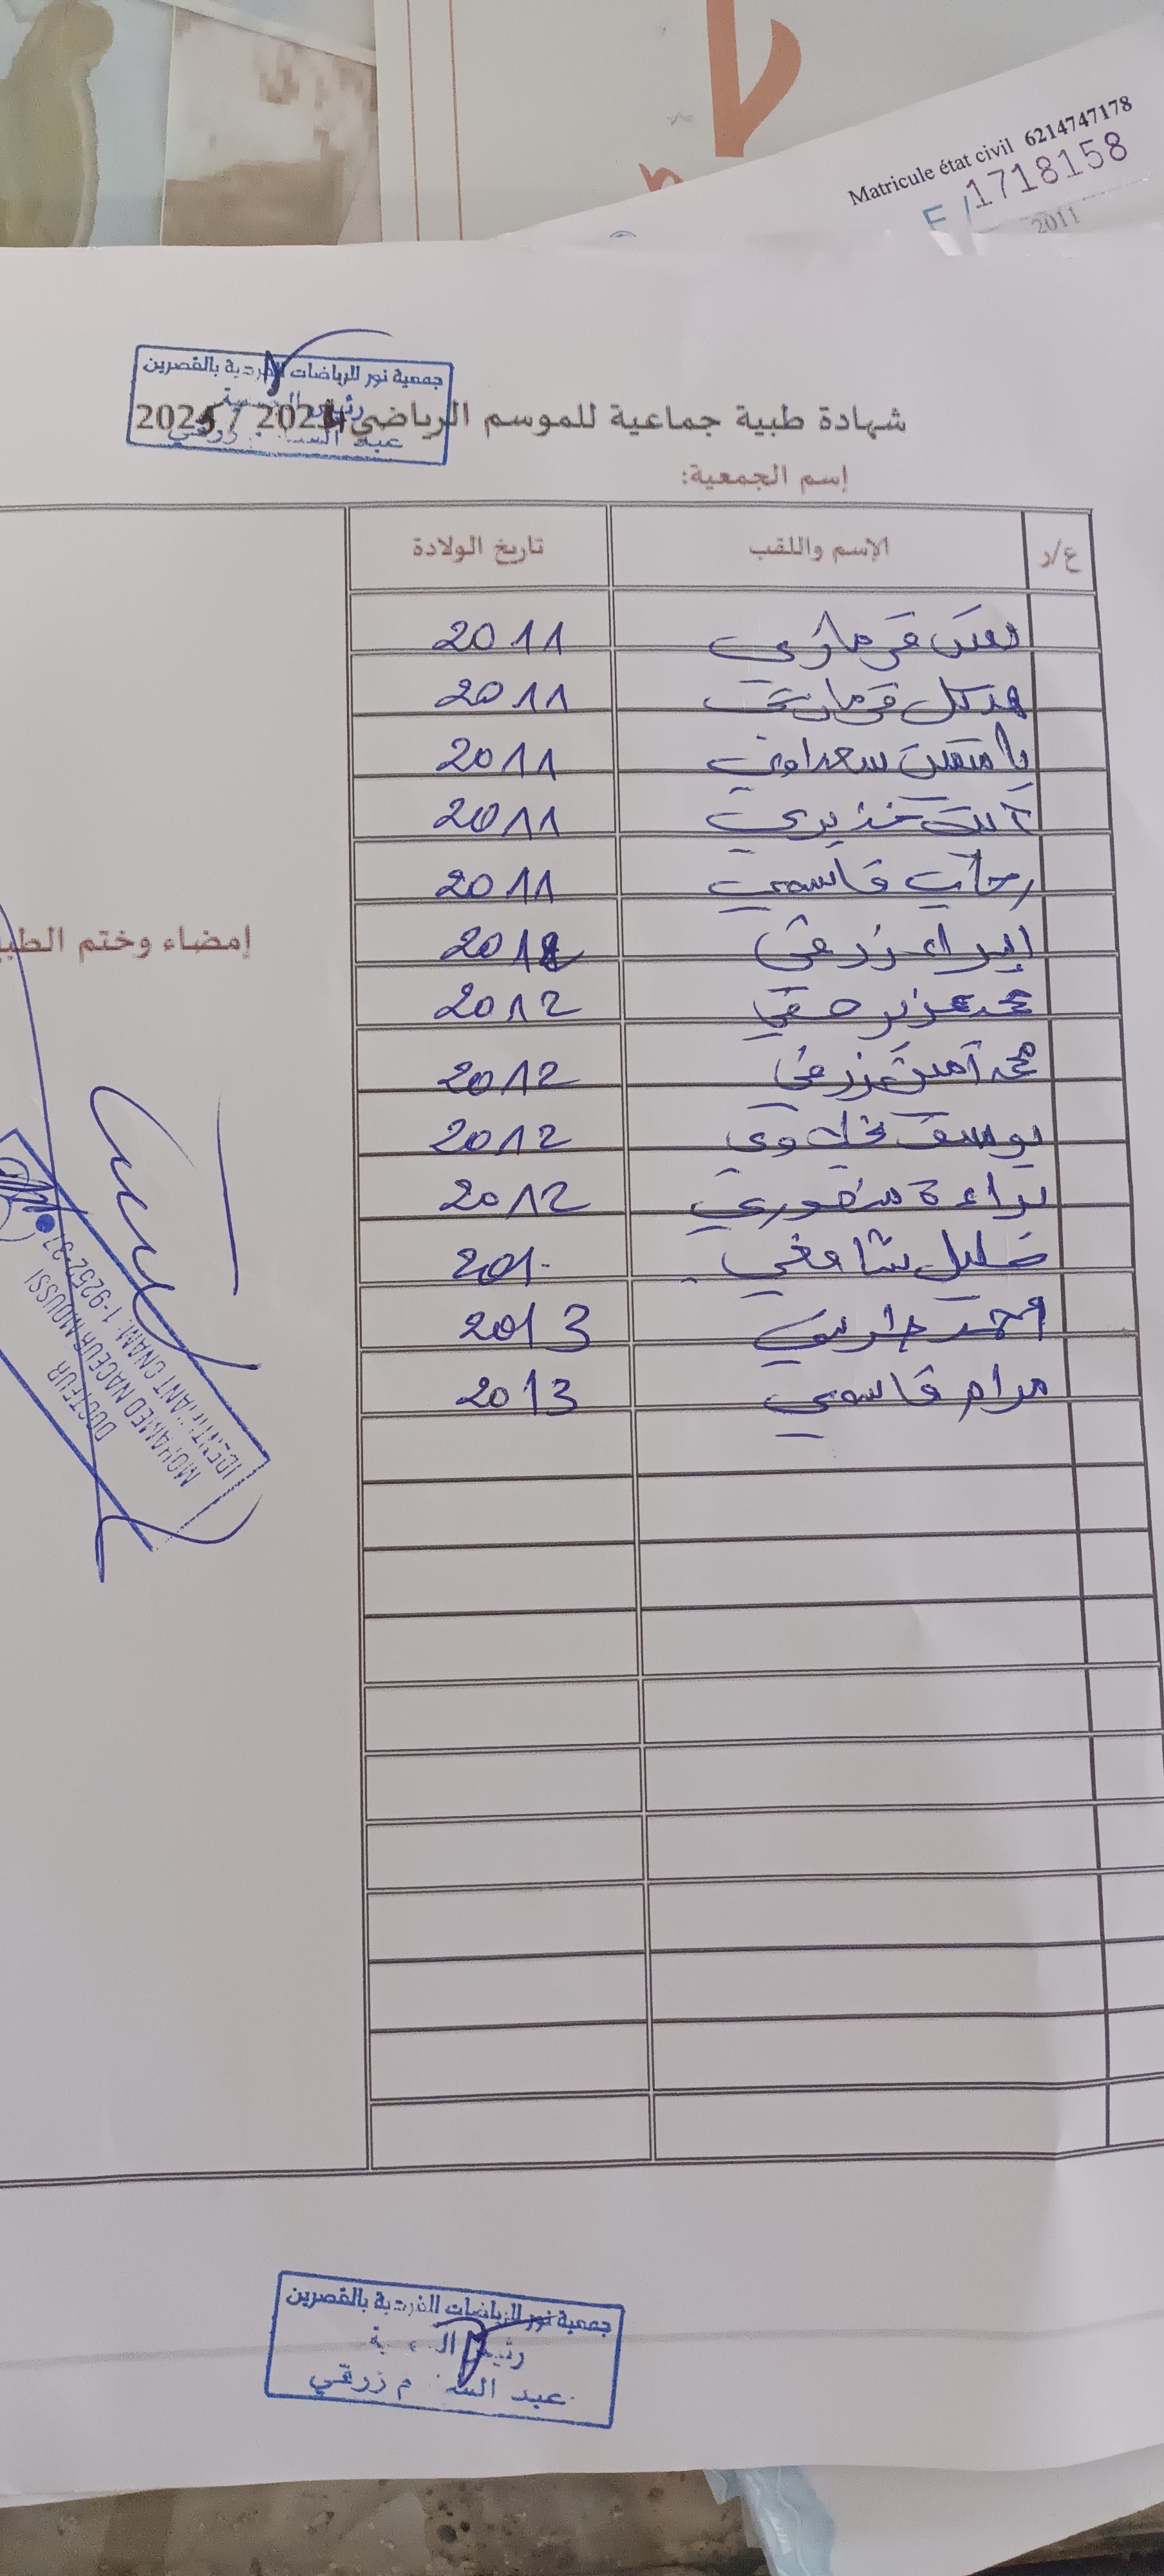 Matricule état civil 6214747178
E/1718158
2011
جمعية نور للرياضات الفردية بالقصرين
شهادة طبية جماعية للموسم الرياضي 2024 / 2025
إسم الجمعية:
ع/ر الإسم واللقب تاريخ الولادة
قرمازي 2011
هيكل 2011
ياسمين سعداوي 2011
آية خذيري 2011
رحاب قاسمي 2011
إسراء زرقي 2012
محمد عزيز حقي 2012
محمد أمين زرقي 2012
يوسف 2012
براءة منصوري 2012
خليل شافعي 201
أحمد 2013
مرام قاسمي 2013
إمضاء وختم الطبي
DOCTEUR
MOHAMED NACEUR MOUSSI
IDENTIFIANT CNAM: 1-9252-37
جمعية نور للرياضات الفردية بالقصرين
رئيس
عبد السلام زرقي